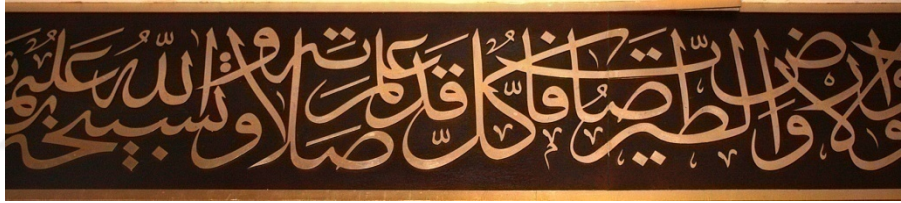 والارض والطير صافات كل قد علم صلاته وتسبيحه والله عليم